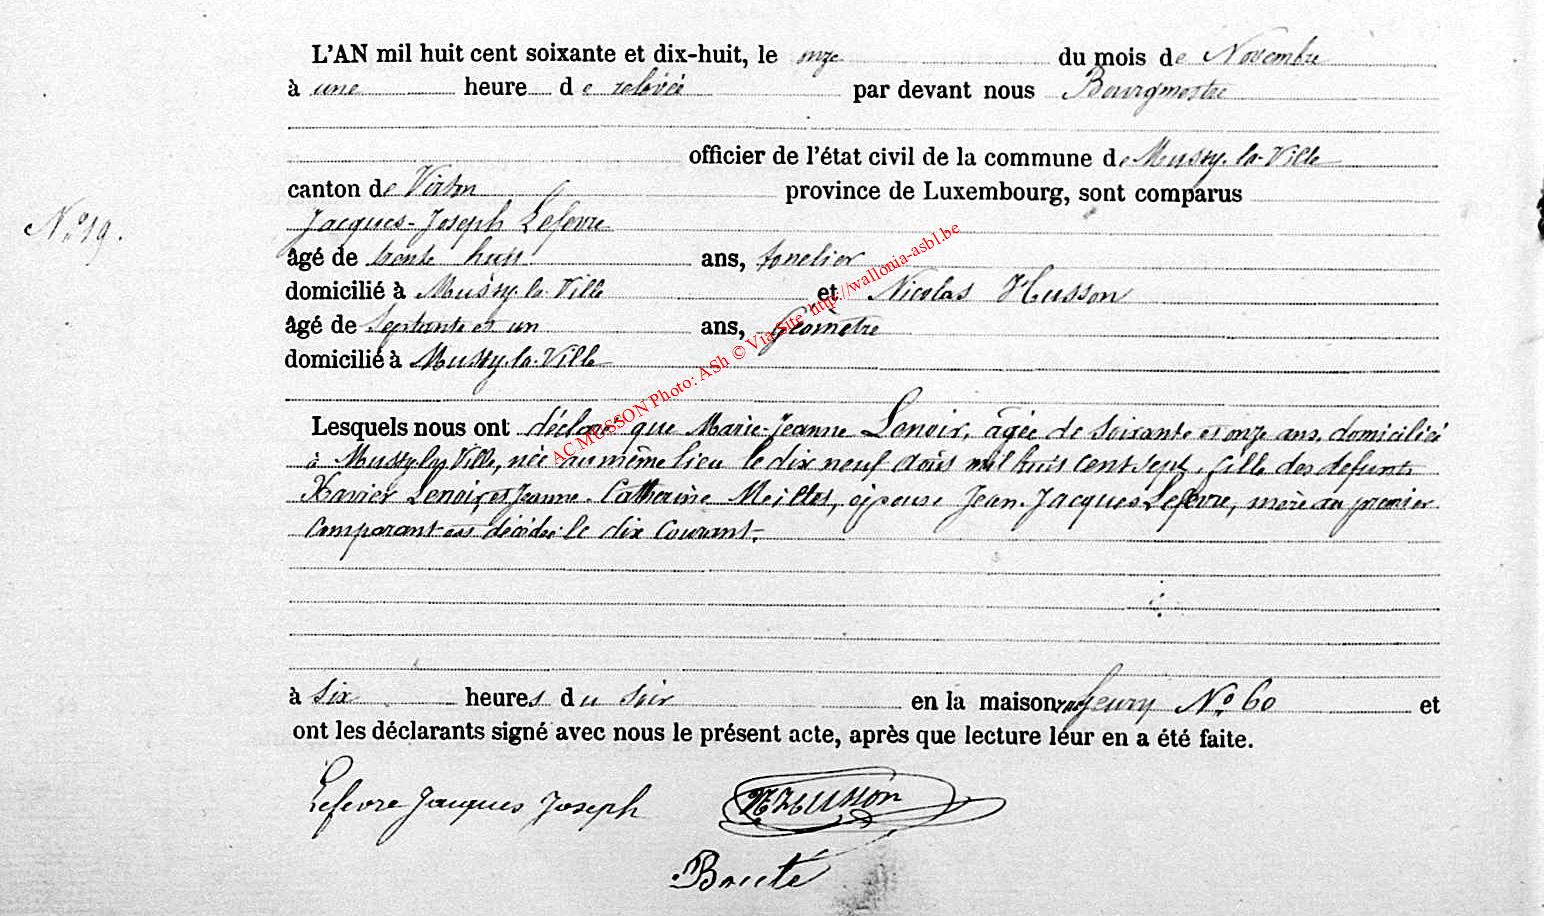 L'AN mil huit cent soixante et dix-huit, le onze du mois de Novembre
à une heure de relévée par devant nous Bourgmestre
officier de l'état civil de la commune de Mussy-la-Ville
canton de Virton province de Luxembourg, sont comparus
N° 19.
Jacques-Joseph Lefevre
âgé de trente huit ans, tonelier
domicilié à Mussy-la-Ville et Nicolas Husson
âgé de Septante et un ans, Géomètre
domicilié à Mussy-la-Ville
Lesquels nous ont déclaré que Marie-Jeanne Lenoir, âgée de Soixante et onze ans, domiciliée
à Mussy-la-Ville, née au même lieu le dix neuf août mil huit cent sept, fille des defunts
Xavier Lenoir, et Jeanne-Catherine épouse Jean-Jacques Lefevre, mère du premier
Comparant est décédée le dix Courant.
à six heures du Soir en la maison N° 60 et
ont les déclarants signé avec nous le présent acte, après que lecture leur en a été faite.
Lefevre Jacques Joseph NHusson
Bouté
AC MUSSON Photo: ASh © Via Site http://wallonia-asbl.be